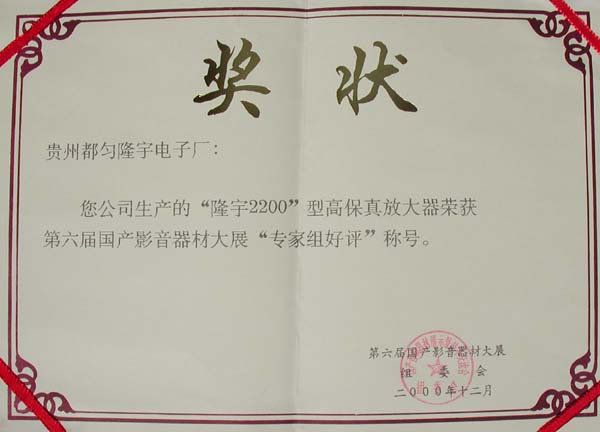 奖状
贵州都匀隆宇电子厂：
您公司生产的“隆宇2200”型高保真放大器荣获
第六届国产影音器材大展“专家组好评”称号。
第六届国产影音器材大展
组委会
二000年十二月